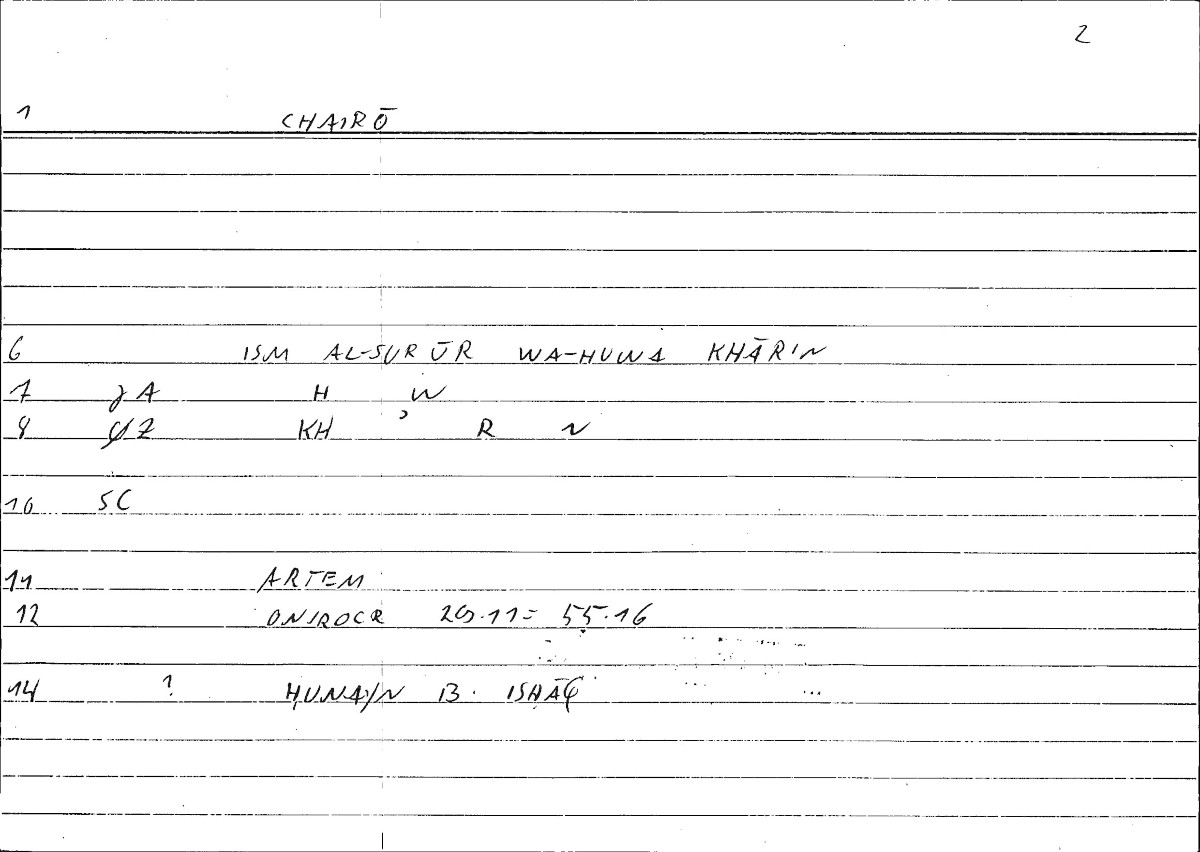 2
1 CHAIRŌ
6 ISM AL-SURŪR WA-HUWA KHĀRIN
7 A H W
8 KH ʾ R N
10 SC
11 ARTEM
12 ONIROCR 29.11= 55.16
14 ? ḤUNAYN B. ISḤĀQ